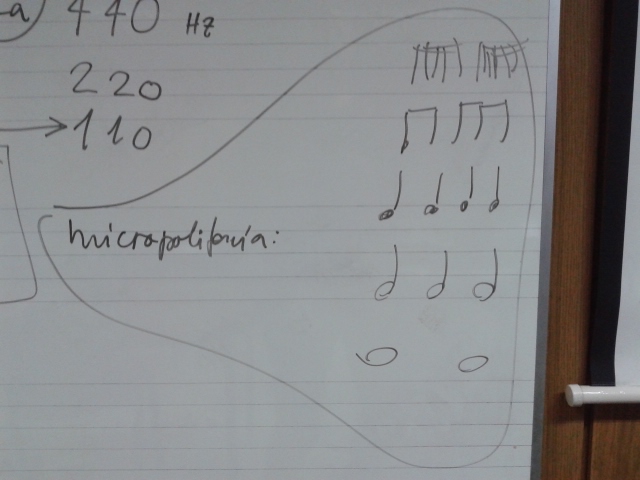 a 440 Hz
220
110
micropolifonía: